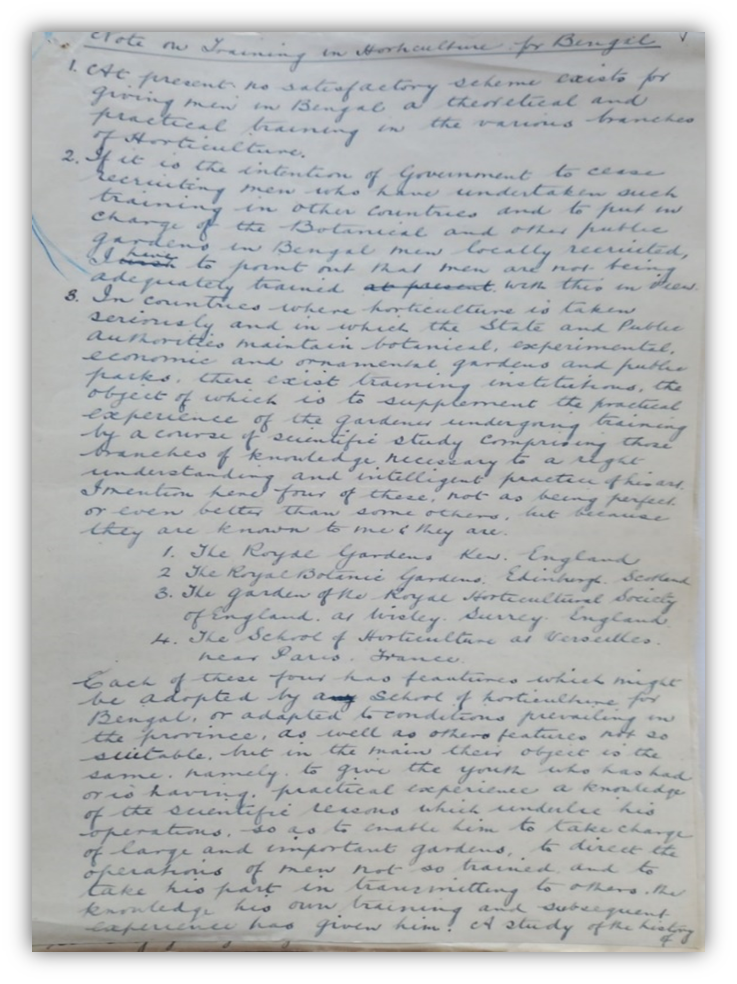 Note on Training in Horticulture for Bengal
1. At present no satisfactory scheme exists for
giving men in Bengal a theoretical and
practical training in the various branches
of Horticulture.
2. If it is the intention of Government to cease
recruiting men who have undertaken such
training in other countries and to put in
charge of the Botanical and other public
gardens in Bengal men locally recruited,
I have to point out that men are not being
adequately trained at present with this in view.
3. In countries where horticulture is taken
seriously and in which the State and Public
Authorities maintain botanical, experimental,
economic and ornamental gardens and public
parks, there exist training institutions, the
object of which is to supplement the practical
experience of the gardener undergoing training
by a course of scientific study comprising those
branches of knowledge necessary to a right
understanding and intelligent practice of his art.
I mention here four of these, not as being perfect
or even better than some others, but because
they are known to me & they are.
1. The Royal Gardens Kew. England
2 The Royal Botanic Gardens. Edinburgh. Scotland
3. The garden of the Royal Horticultural Society
of England. at Wisley. Surrey. England.
4. The School of Horticulture at Versailles.
near Paris. France.
Each of these four has feautures which might
be adopted by any School of horticulture for
Bengal, or adapted to conditions prevailing in
the province, as well as others features not so
suitable, but in the main their object is the
same. namely. to give the youth who has had
or is having, practical experience a knowledge
of the scientific reasons which underlie his
operations, so as to enable him to take charge
of large and important gardens, to direct the
operations of men not so trained and to
take his part in transmitting to others. the
knowledge his own training and subsequent
experience has given him. A study of the history
of